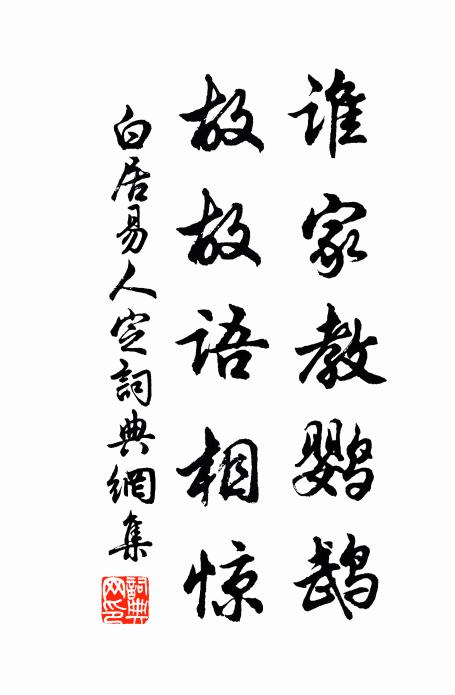 谁家教鹦鹉
故故语相惊
白居易人定詞典網集
詞典网印